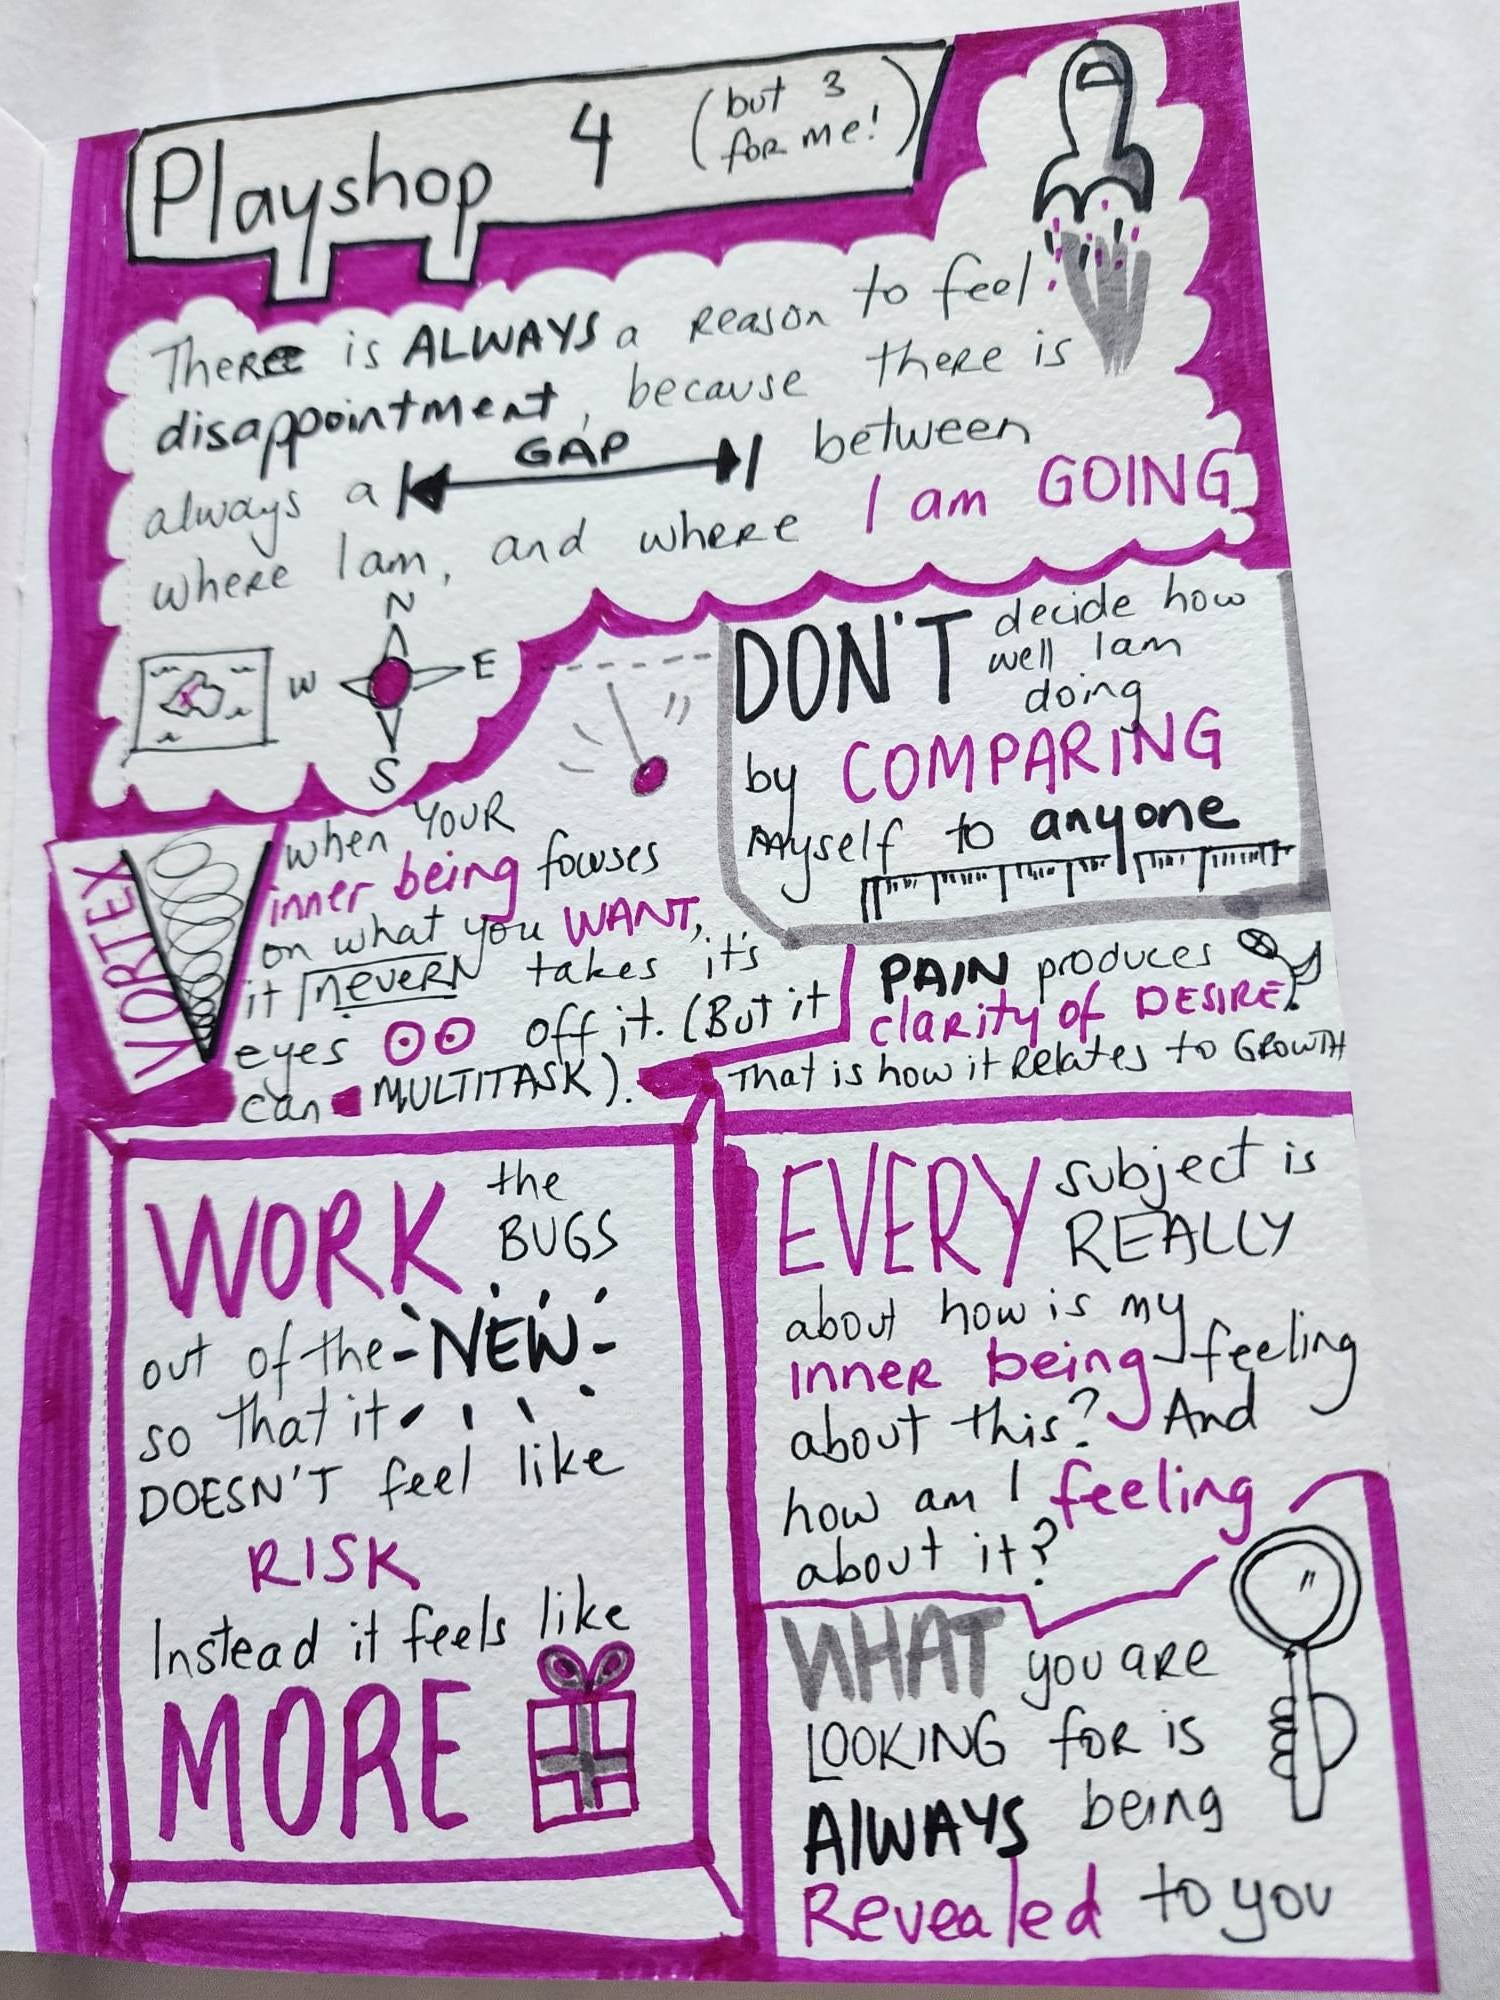 Playshop 4 (but 3
for me!)
There is ALWAYS a reason to feel
disappointment, because there is
always a GAP between
where I am, and where I am GOING
N
W E
S
DON'T decide how
well I am
doing
by COMPARING
myself to anyone
VORTEX
when YOUR
inner being focuses
on what you WANT,
it never takes it's
eyes off it. (But it
can MULTITASK).
PAIN produces
clarity of DESIRE.
That is how it relates to GROWTH
WORK the
BUGS
out of the NEW
so that it
DOESN'T feel like
RISK
Instead it feels like
MORE
EVERY subject is
REALLY
about how is my
inner being feeling
about this? And
how am I feeling
about it?
WHAT you are
LOOKING for is
AlWAYS being
Revealed to you